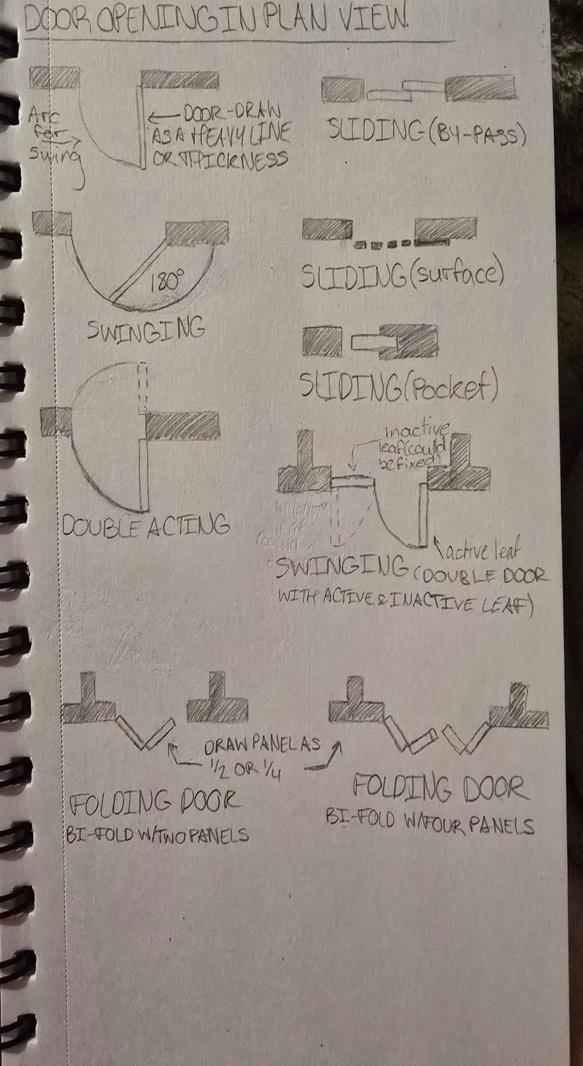 DOOR OPENING IN PLAN VIEW
Arc
for
swing
DOOR-DRAW
AS A HEAVY LINE
OR THICKNESS
SLIDING (BY-PASS)
180°
SWINGING
SLIDING (surface)
SLIDING (Pocket)
DOUBLE ACTING
inactive
leaf (could
be fixed)
active leaf
SWINGING (DOUBLE DOOR
WITH ACTIVE & INACTIVE LEAF)
DRAW PANEL AS
1/2 OR 1/4
FOLDING DOOR
BI-FOLD W/TWO PANELS
FOLDING DOOR
BI-FOLD W/FOUR PANELS